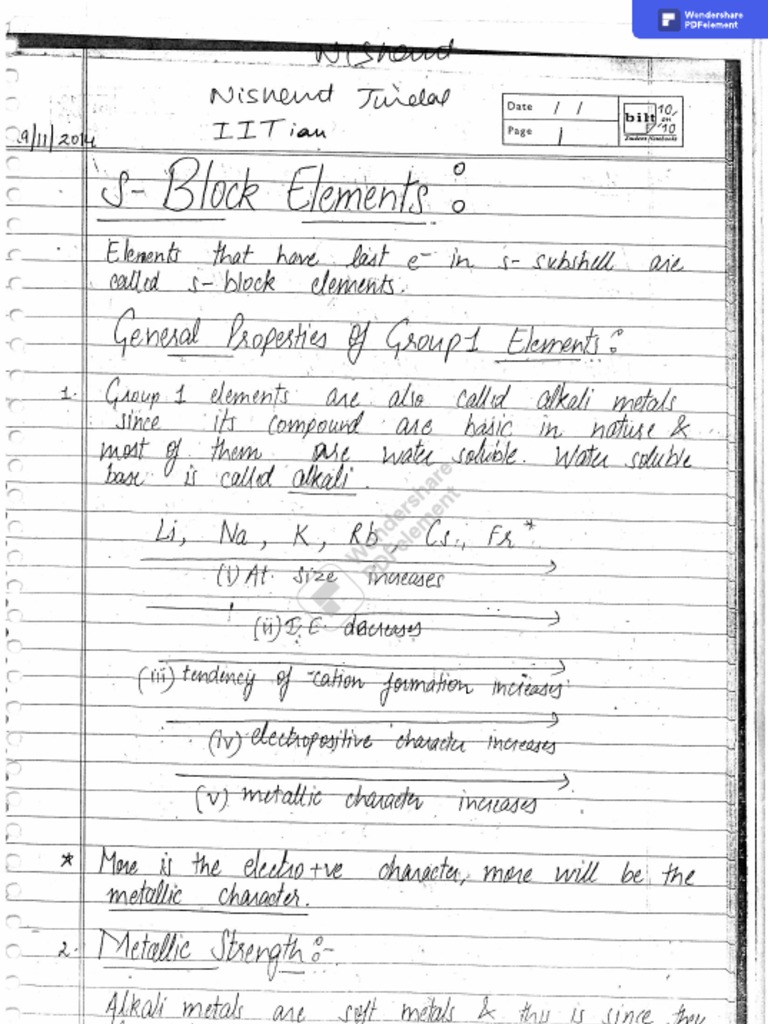 Wondershare
PDFelement
Nishend
Nishend Jindal
IITian
Date / /
Page 1
bilt
10
on
10
9/11/2014
s- Block Elements :
Elements that have last e⁻ in s- subshell are
called s-block elements.
General Properties of Group 1 Elements :
1. Group 1 elements are also called alkali metals
since its compound are basic in nature &
most of them are water soluble. Water soluble
base is called alkali.
Li, Na, K, Rb, Cs, Fr*
(i) At. size increases
(ii) I.E. decreases
(iii) tendency of cation formation increases
(iv) electropositive character increases
(v) metallic character increases
* More is the electro+ve character, more will be the
metallic character.
2. Metallic Strength :-
Alkali metals are soft metals & this is since they
Wondershare
PDFelement